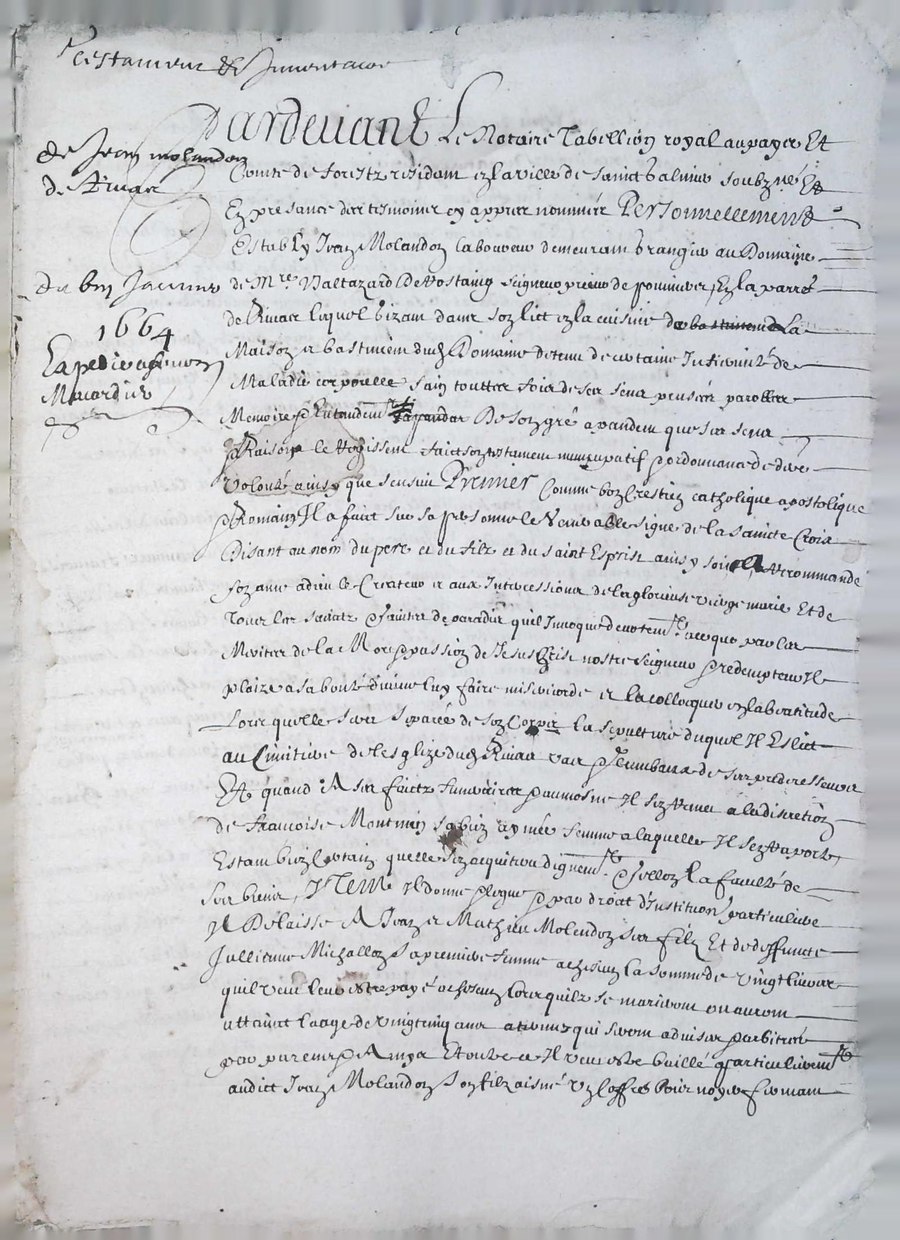 Testament & Inventaire
de Jean molandon
de Rivas
du 6m Janvier
1664
Expedié
Pardevant Le Notaire Tabellion royal au payes Et
Comte de forestz residant en la ville de sainct Galmier soubzné Et
En presance des tesmoins cy appres nommés Personnellement
Estably Jean Molandon laboureur demeurant grangier au Domaine
de Mre Baltazard De Rostaing seigneur prieur de pommiers, En la parre
de Rivas lequel gizant dans son lict en la cuisine de La
Maison et bastiment dud Domaine detenu de certaine Infirmité de
Maladie corporelle sain touttes fois de ses sens pensées parolles
Memoire & Entandemt De son gré apandent que ses sens
& Raison le Regissent faict son testament nuncupatif & ordonnance de
volonté ainsy que sensuit Premier Comme bon Crestien catholique apostolique
& Romain Il a faict sur sa personne le Venerable signe de la saincte Croix
Disant au nom du pere et du filz et du saint Esprit ainsy soit Recommande
son ame a dieu le Createur et aux Intercessions de la glorieuse vierge marie Et de
Tous les saintz & saintes de paradis quil Invoque devotemt ce que par les
Merites de la Mort & passion de Jesus Crist nostre seigneur & redempteur Il
plaize a sa bonté divine luy faire misericorde et la collocquer en la beatitude
Lors quelle sera separée de son Corps la sepulture duquel Il Eslict
au Cimitiere de lesglize dud Rivas & tumbaux de ses predecesseurs
Et quand A ses faictz funeraires & aumosne Il sen remet a la discretion
de francoise Montmey sa bien aymée femme a laquelle Il sen raporte
Estant bien certain quelle sen acquitera dignemt & sellon la faculté de
ses biens, Item Il donne & legue & par droat d'Instituon particuliere
Il Delaisse A Jean et Mathieu Molandon ses filz Et de deffuncte
Jullienne Michallon sa premiere femme a chascun la somme de vingt livres
quil veut leur estre payé a chescun Lors quilz se marieront ou auront
attaint laage de vingt cinq ans a termes qui seront advisés & arbitrés
par parens & Amys Et oultre ce Il veut estre baillé & particulieremt
audict Jean Molandon son filz aisné un coffre bois noyer fermant